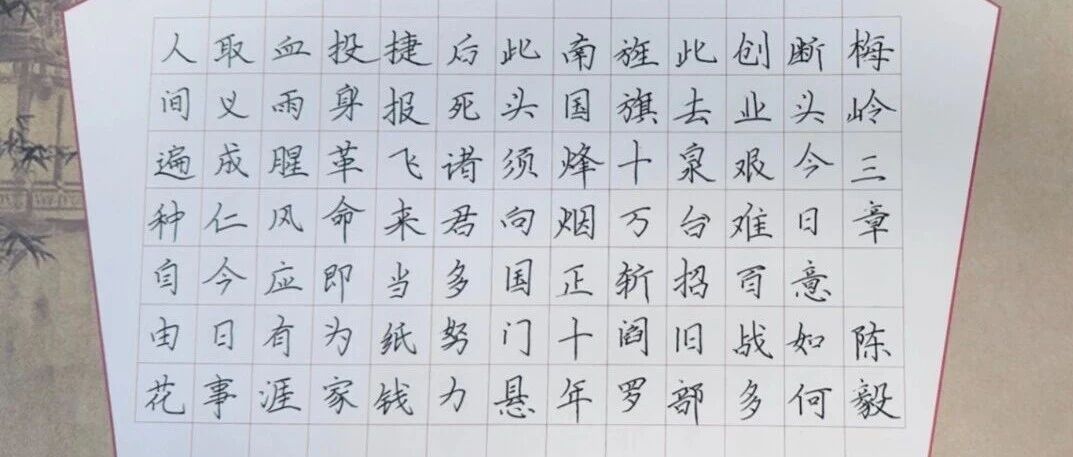 梅岭三章 陈毅
断头今日意如何
创业艰难百战多
此去泉台招旧部
旌旗十万斩阎罗
南国烽烟正十年
此头须向国门悬
后死诸君多努力
捷报飞来当纸钱
投身革命即为家
血雨腥风应有涯
取义成仁今日事
人间遍种自由花